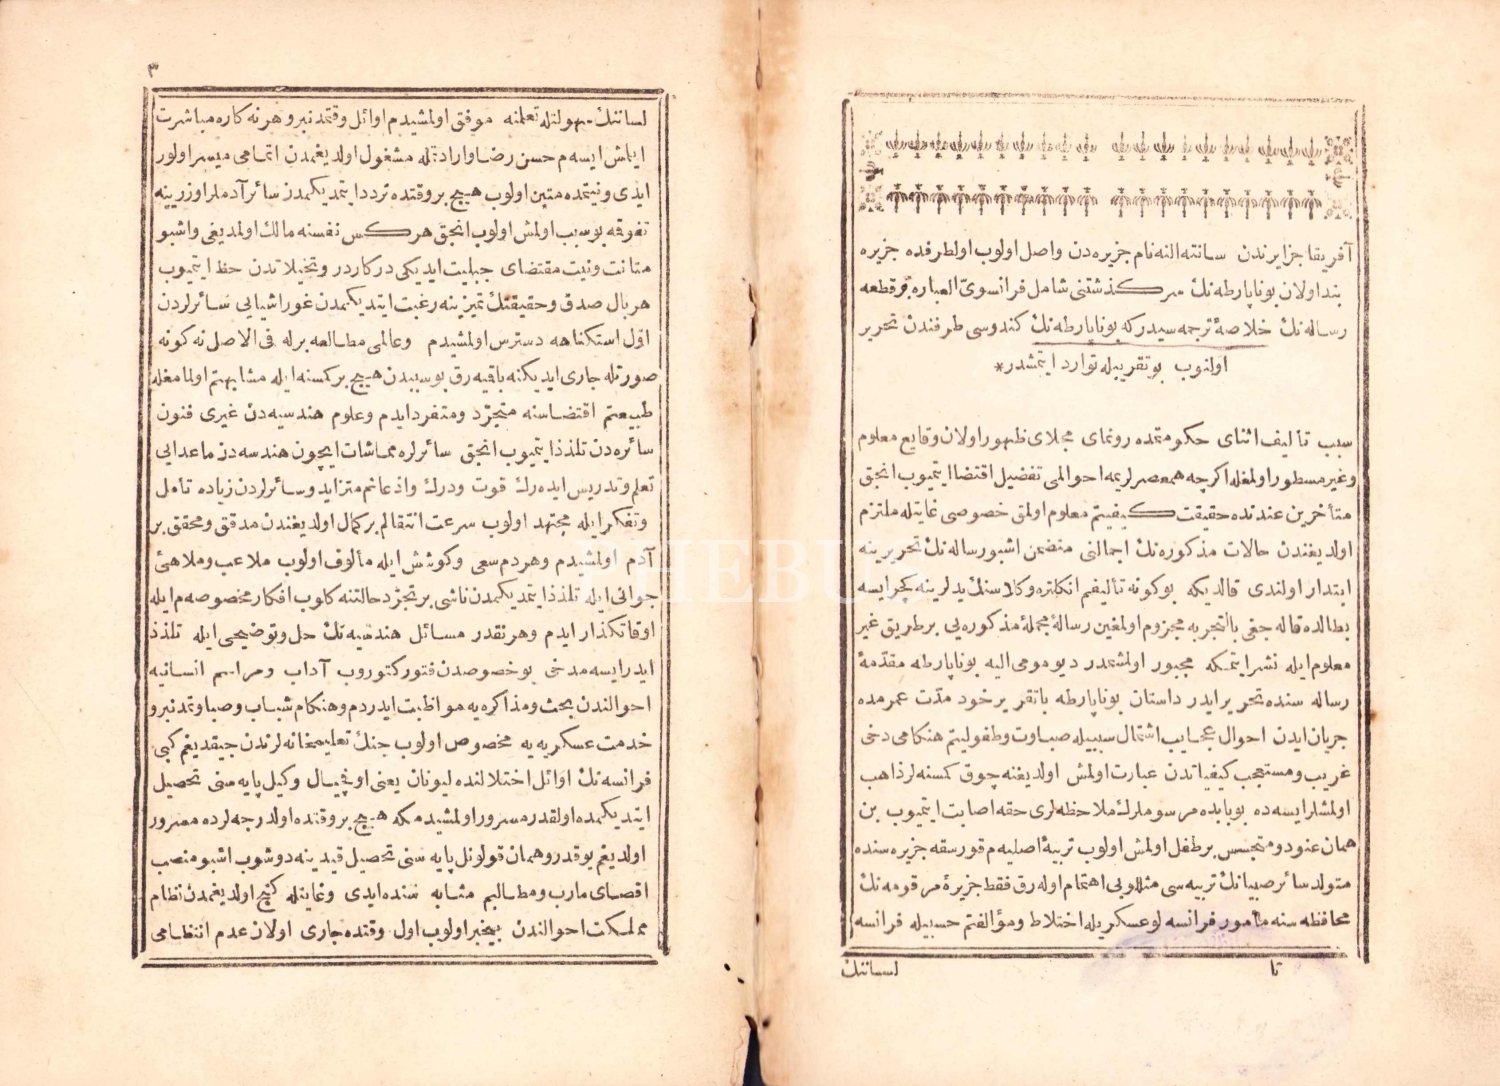 آفریقا جزایرندن سانته النه نام جزیره‌دن واصل اولوب اولطرفده جزیره
بند اولان بوناپارطه‌نڭ سرکذشتنی شامل فرانسوی العباره بر قطعه
رساله‌نڭ خلاصهٔ ترجمه‌سیدر که بوناپارطه‌نڭ کندوسی طرفندن تحریر
اولنوب بو تقریبله توارد ایتمشدر*
سبب تألیف اثنای حکومتمده رونمای مجلای ظهور اولان وقایع معلوم
وغیر مسطور اولمغله اکرچه همعصرلریمه احوالمی تفضیل اقتضا ایتمیوب انجق
متأخرین عندنده حقیقت کیفیتم معلوم اولمق خصوصی غایتله ملتزم
اولدیغندن حالات مذکوره‌نڭ اجمالنی متضمن اشبو رساله‌نڭ تحریرینه
ابتدار اولندی قالدیکه بو کونه تألیفم انکلتره وکلاسنڭ یدلرینه کچر ایسه
بطالده قاله‌جغی بالتجربه مجزوم اولمغین رسالهٔ مجملهٔ مذکوره‌یی بر طریق غیر
معلوم ایله نشر ایتمکه مجبور اولشمدر دیو مومی الیه بوناپارطه مقدمهٔ
رساله‌سنده تحریر ایدر داستان بوناپارطه باتقریر خود مدت عمرمده
جریان ایدن احوال عجایب اشتمال سببیله صباوت وطفولیتم هنکامی دخی
غریب ومستعجب کیفیاتدن عبارت اولمش اولدیغنه چوق کمسنه‌لر ذاهب
اولمشلر ایسه‌ده بو بابده مرسوملرڭ ملاحظه‌لری حقه اصابت ایتمیوب بن
همان عنود ومتجسس بر طفل اولمش اولوب تربیهٔ اصلیه‌م قورسقه جزیره‌سنده
متولد سائر صبیانڭ تربیه‌سی مثللو بی اهتمام اوله‌رق فقط جزیرهٔ مرقومه‌نڭ
محافظه‌سنه مأمور فرانسه‌لو عسکریله اختلاط ومؤالفتم حسبیله فرانسه
تا
لسانڭ
٣
لسانڭ سهولتله تعلمنه موفق اولمشیدم اوائل وقتمدنبرو هر نه کاره مباشرت
ایتمش ایسه‌م حسن رضا وارادتله مشغول اولدیغمدن اتمامی میسر اولور
ایدی ونیتمده متین اولوب هیچ بر وقتده تردد ایتمدیکمدن سائر آدملر اوزرینه
تفوقه بو سبب اولمش اولوب انجق هرکس نفسنه مالك اولمدیغی واشبو
متانت ونیت مقتضای جبلیت ایدیکی درکاردر وتخیلاتدن حظ ایتمیوب
هربال صدق وحقیقتڭ تمیزینه رغبت ایتدیکمدن غور اشیایی سائرلردن
اول استکناهه دسترس اولمشیدم وعالمی مطالعه برله فی الاصل نه کونه
صورتله جاری ایدیکنه باقیه‌رق بو سببدن هیچ بر کمسنه ایله مشابهتم اولمامغله
طبیعتم اقتضاسنه متجرد ومتفرد ایدم وعلوم هندسیه‌دن غیری فنون
سائره‌دن تلذذ ایتمیوب انجق سائرلره مماشات ایچون هندسه‌دن ماعدایی
تعلم وتدریس ایده‌رك قوت ودرك واذعانم متزاید وسائرلردن زیاده تأمل
وتفکر ایله مجتهد اولوب سرعت انتقالم بر کمال اولدیغندن مدقق ومحقق بر
آدم اولمشیدم وهر دم سعی وکوشش ایله مألوف اولوب ملاعب وملاهئ
جوانی ایله تلذذ ایتمدیکمدن ناشی بر تجرد حالتنه کلوب افکار مخصوصه‌م ایله
اوقاتکذار ایدم وهر نقدر مسائل هندسیه‌نڭ حل وتوضیحی ایله تلذذ
ایدر ایسه‌مدخی بو خصوصدن فتور کتوروب آداب ومراسم انسانیه
احوالندن بحث ومذاکره‌یه مواظبت ایدردم وهنکام شباب وصباوتمدنبرو
خدمت عسکریه‌یه مخصوص اولوب جنك تعلیمخانه‌لرندن چیقدیغم کبی
فرانسه‌نڭ اوائل اختلالنده لیونان یعنی اوفچیال وکیل پایه‌سنی تحصیل
ایتدیکمده اولقدر مسرور اولمشیدمکه هیچ بر وقتده اولدرجه‌لرده مسرور
اولدیغم یوقدر وهمان قولونل پایه‌سنی تحصیل قیدینه دوشوب اشبو منصب
اقصای مآرب ومطالبم مثابه‌سنده ایدی وغایتله کنج اولدیغمدن نظام
مملکت احوالندن بیخبر اولوب اول وقتده جاری اولان عدم انتظامی